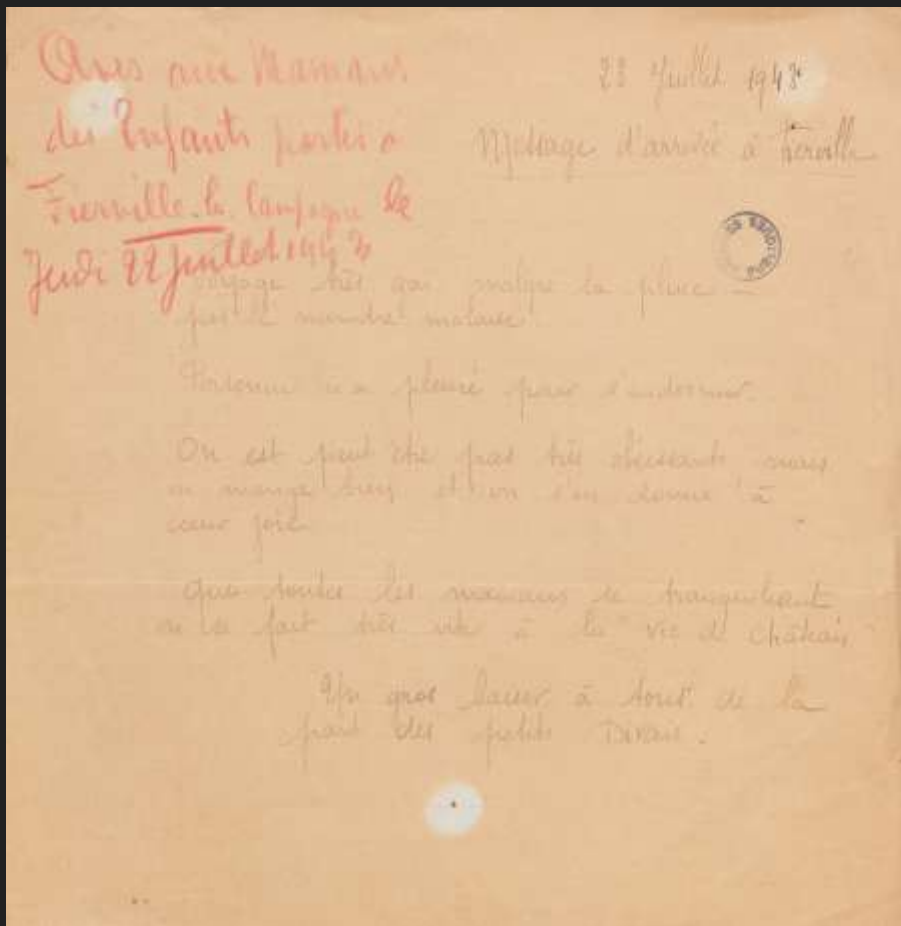 Avis aux Mamans
des Enfants partis à
Fierville-la-Campagne le
Jeudi 22 Juillet 1943
23 Juillet 1943
Message d'arrivée à Fierville
Voyage très gai malgré la pluie —
pas le moindre malaise.
Personne n'a pleuré pour s'endormir.
On est peut être pas très obéissants mais
on mange bien et on s'en donne à
cœur joie.
Que toutes les mamans se tranquilisent
on se fait très vite à la vie de château
Un gros baiser à tous de la
part des petits Divais.